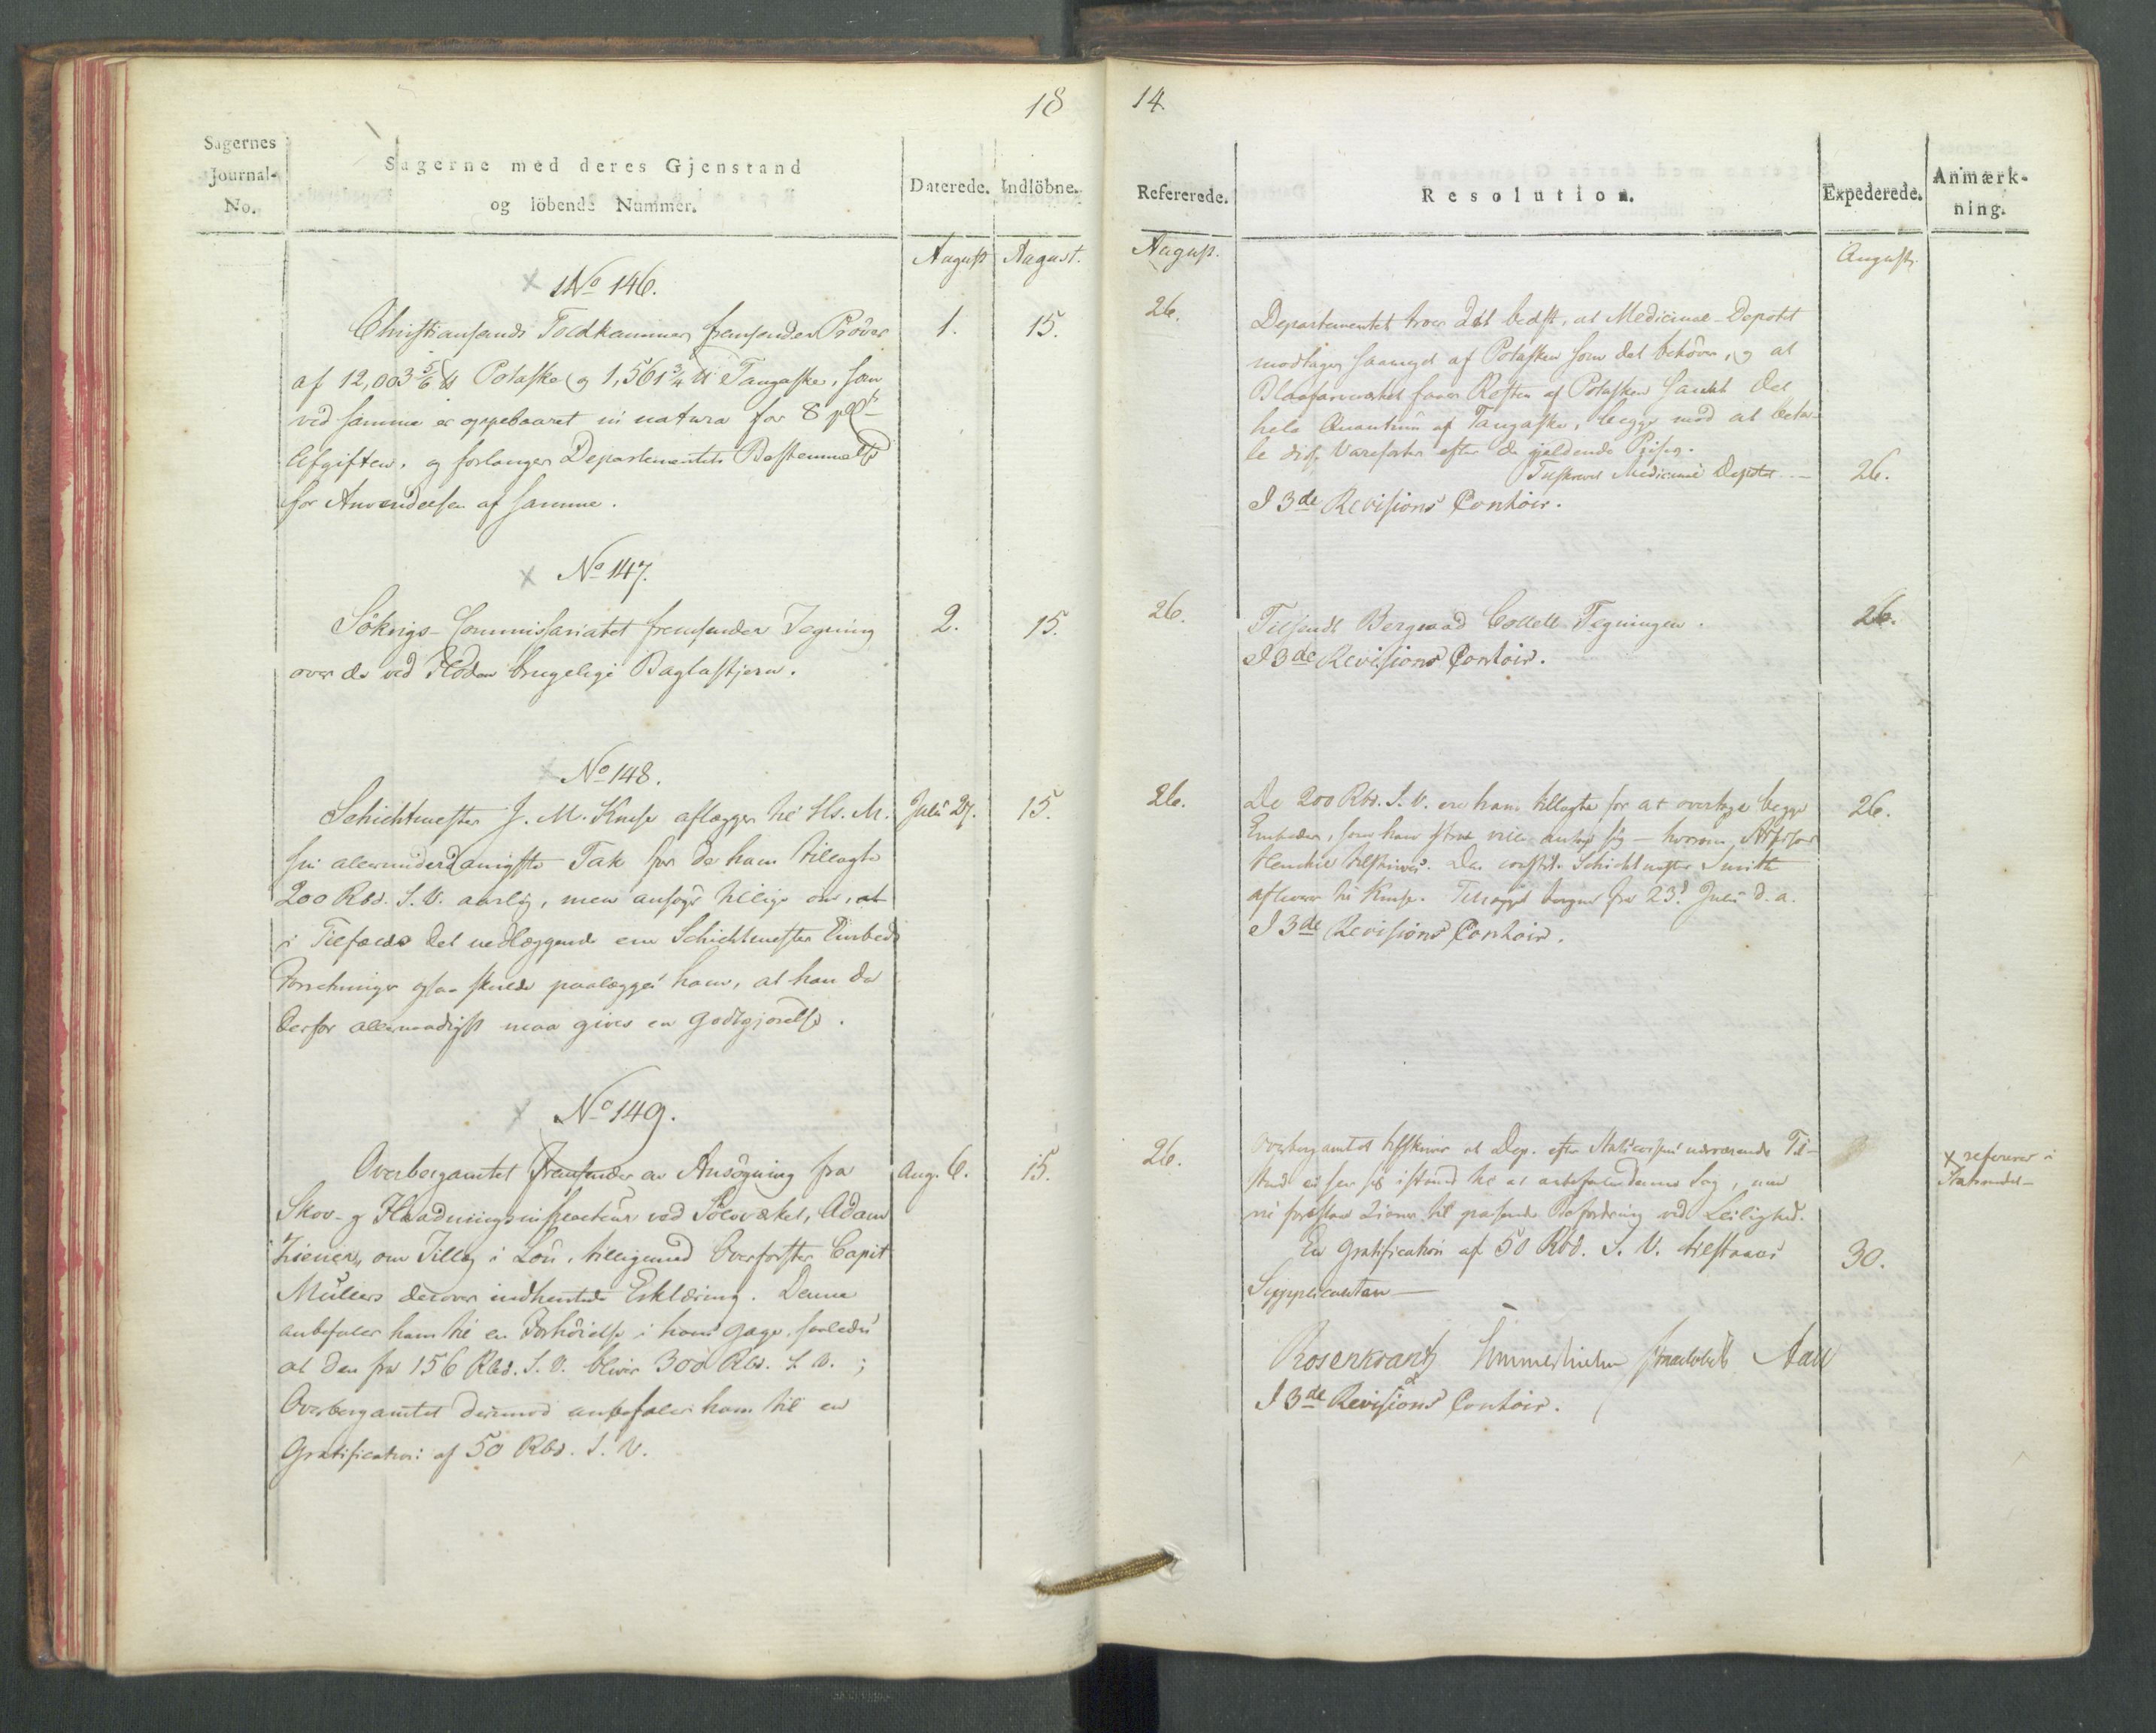 18
Sagernes
Journal-
No.
Sagerne med deres Gjenstand
og löbende Nummer.
Daterede.
Indlöbne.
August
August.
No 146.
Christiansands Toldkammer fremsender Prøver
1.
15.
af 12,003 5/6 ℔ Potaske og 1,561 3/4 ℔ Tangaske, som
ved samme er oppebaaret in natura for 8 pCt
Afgiften, og forlanger Departementets Bestemmelse
for Anvendelsen af samme.
No 147.
Søkrigs-Commissariatet fremsender Tegning
2.
15.
over de ved Floden brugelige Baglastjern.
No 148.
Schichtmester J. M. Kruse aflægger til Hs. M.
Juli 27.
15.
sin allerunderdanigste Tak for de ham tillagte
200 Rbd. S. V. aarlig, men ansøger tillige om, at
i Tilfælde det vedlæggende ene Schichtmester Embeds
Forretninger ogsaa skulde paalægges ham, at han da
derfor allernaadigst maa gives en Godtgjørelse.
No 149.
Overbergamtet fremsender en Ansøgning fra
Aug. 6.
15.
Skov- og Flødningsinspecteur ved Sølvverket, Adam
Ziener, om Tillæg i Løn, tilligemed Overforster Capit
Müllers derover indhentede Erklæring. Denne
anbefaler ham til en Forhøielse i hans Gage, saaledes
at den fra 156 Rbd. S. V. bliver 300 Rbd. S. V. ;
Overbergamtet derimod anbefaler ham til en
Gratification af 50 Rbd. S. V.
14.
Refererede.
Resolution.
Expederede.
Anmærk-
ning.
August.
August.
26.
Departementet troer det bedst, at Medicinal-Depotet
modtager saameget af Potasken som det behøver, og at
Blaafarveværket faaer Resten af Potasken samt det
hele Quantum af Tangaske, begge mod at beta-
le disse Varesorter efter de gjældende Priser.
Tilskrevet Medicinal Depotet
26.
I 3de Revisions Contoir.
26.
Tilsendt Bergraad Collett Tegningen.
26.
I 3de Revisions Contoir.
26.
De 200 Rbd. S. V. ere ham tillagte for at overtage begge
26.
Embeder, som han strax vil antage sig – hvorom Assessor
Henchel tilskrives. Den constit. Schichtmester Smith
afleverer til Kruse. Tillægget beregnes fra 23d Juli d. a.
I 3de Revisions Contoir.
26.
Overbergamtet tilskrives at Dep. efter Statscassens nærværende Til-
stand ei seer sig istand til at anbefale denne Sag, men
vil foreslaae Ziener til passende Befordring ved Leilighed.
x refereres i
Statsraadet –
En Gratification af 50 Rbd. S. V. tilstaaes
30.
Supplicanten –
Rosenkrantz Hummelhielm Aall
I 3de Revisions Contoir.